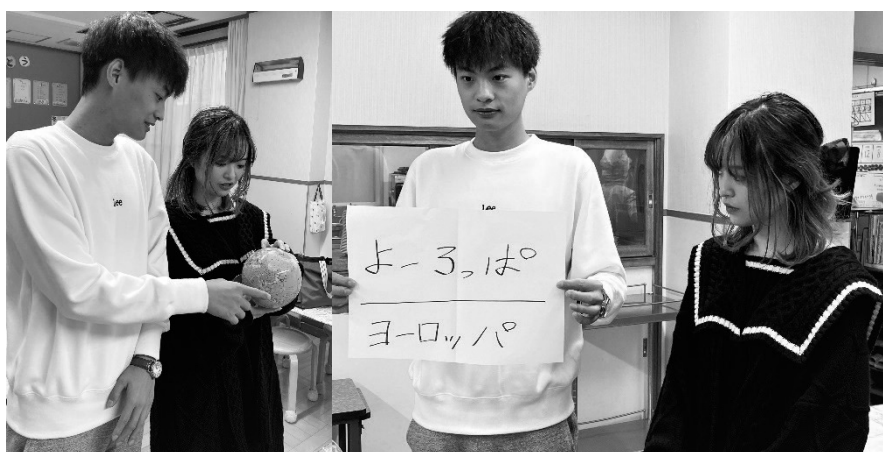 Lee
Lee
よーろっぱ
ヨーロッパ